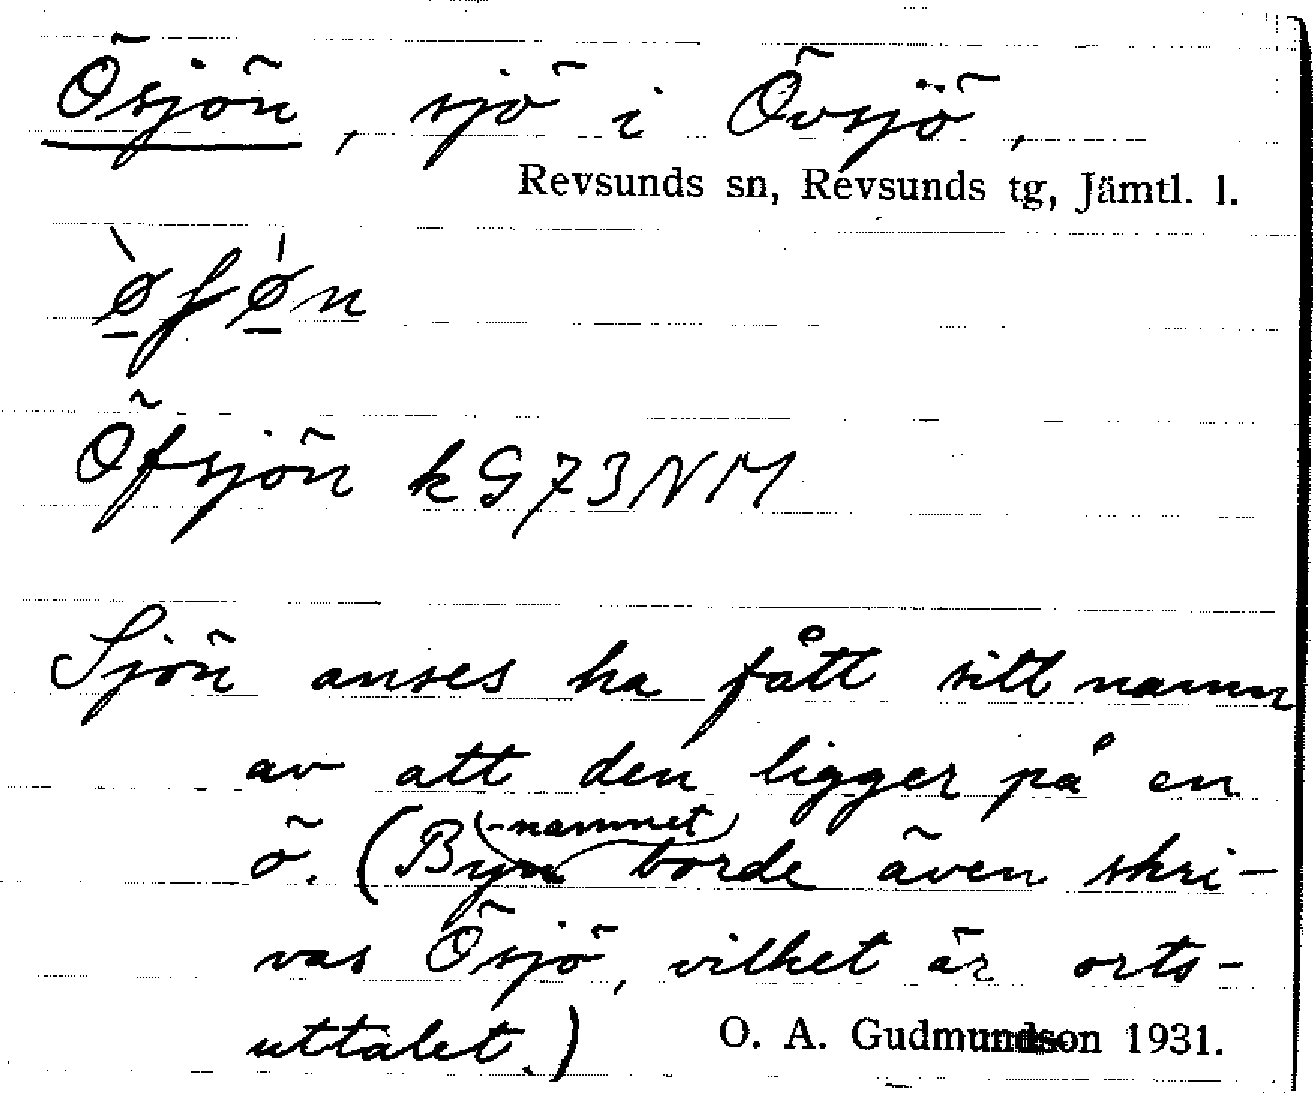 Ösjön, sjö i Övsjö,
Revsunds sn, Revsunds tg, Jämtl. l.
Öfsjön kG73NM
Sjön anses ha fått sitt namn
av att den ligger på en
ö. (By-namnet borde även skri-
vas Ösjö, vilket är orts-
uttalet.) O. A. Gudmundson 1931.